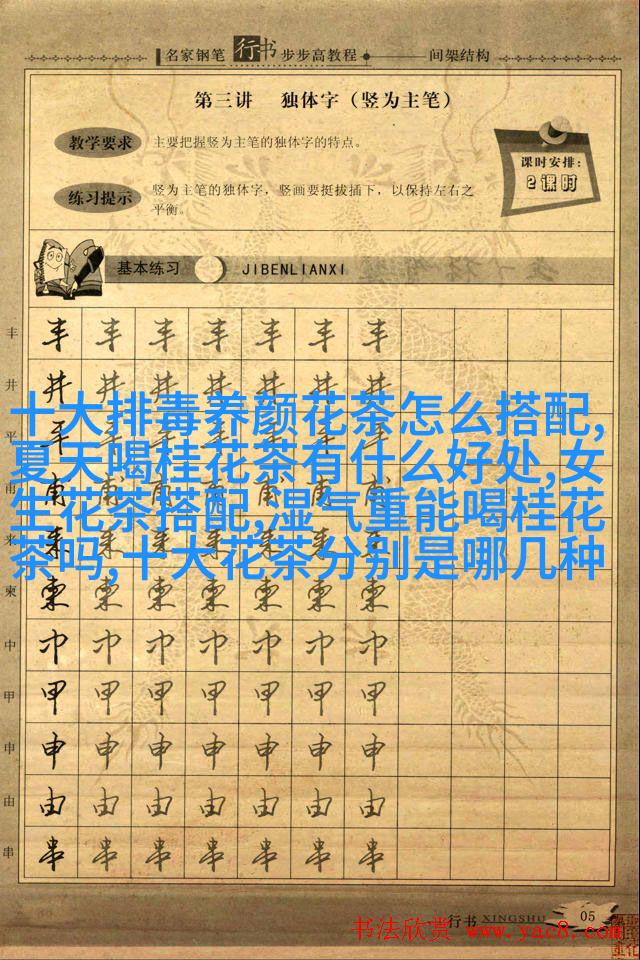 名家钢笔行书步步高教程 间架结构
第三讲 独体字（竖为主笔）
教学要求 主要把握竖为主笔的独体字的特点。
课时安排:
2课时
练习提示 竖为主笔的独体字，竖画要挺拔插下，以保持左右之
平衡。
基本练习 JIBENLIANXI
丰 丰 丰 丰 丰 丰 丰 丰
井 井 井 井 井 井 井 井
十大排毒养颜花茶怎么搭配,
夏天喝桂花茶有什么好处,女
生花茶搭配,湿气重能喝桂花
茶吗,十大花茶分别是哪几种
平
甫
来
柬 柬 柬 柬 柬 柬 柬 柬
中 中 中 中 中 中 中 中
甲 甲 甲 甲 甲 甲 甲 甲
申 申 申 申 申 申 申 申
由 由 由 由 由 由 由 由
串 串 串 串 串 串 串 串
行书 XINGSHU 05
书法欣赏 www.yac8.com